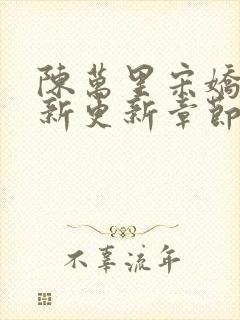 陳萬里宋嬌
新更新章節
不辜流年